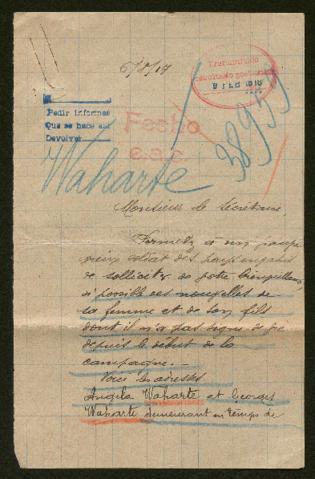 6/8/17
Tramitado
9 FEB 1918
Pedir informes
Que se hace así
Devolver
Fecho
38957
Waharte
Monsieur le Secrétaire
Permettez à un
vieux soldat des
de solliciter de votre bienveillance,
si possible des nouvelles de
sa femme et de son fils
dont il n'a pas signe de vie
depuis le début de la
campagne.
Voici les adresses
Angéla Waharte et Georges
Waharte demeurant en temps de